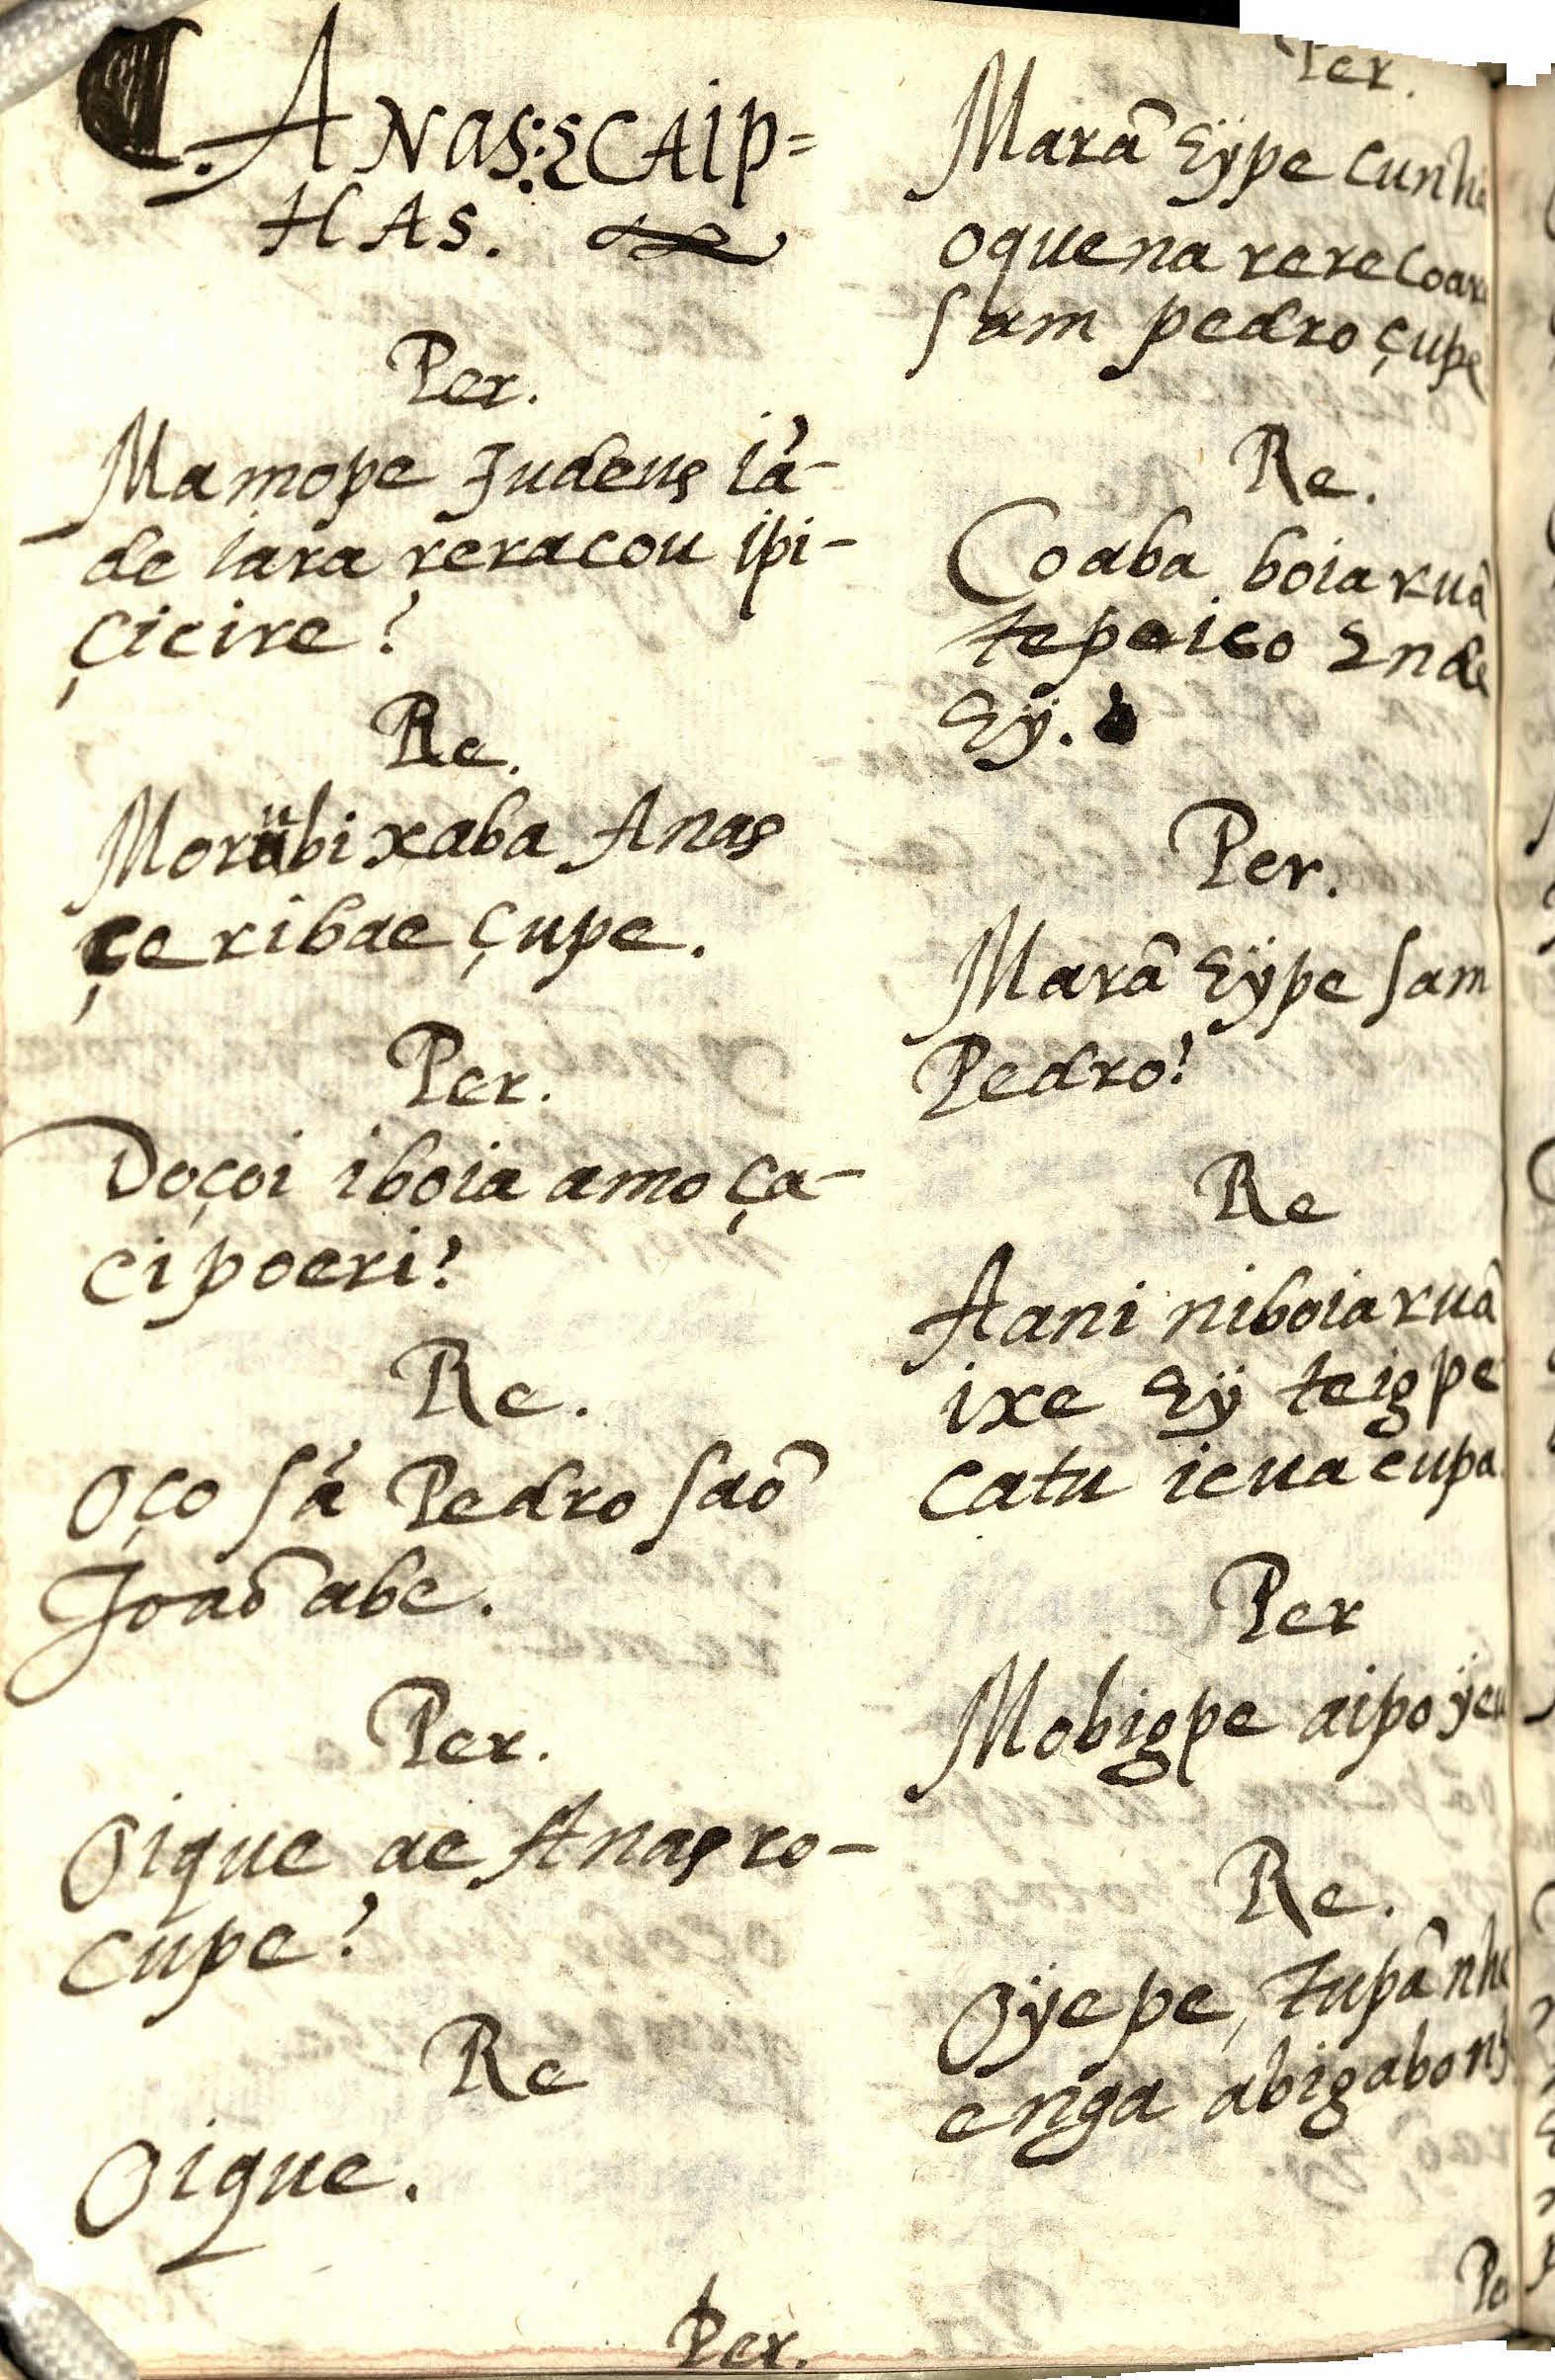 ¶. ANas: & CAip=
HAS.
Per.
Mamope Judeus iá-
de iara reracou ipi-
çicire?
Re.
Morübixaba Anas
çeribae çupe.
Per.
Doçoi iboia amo ça-
cipoeri?
Re.
Oço sá Pedro saõ
Joaõ abe.
Per.
Oique ae Anas ro-
cupe?
Re
Oique.
Per.
Per.
Marã Eÿpe cunha
oquena rerecoara
sam pedro çupe
Re.
Coaba boia ruã
tepeico Ende
Eÿ.
Per.
Marã Eÿpe sam
Pedro?
Re
Aani niboia ruã
ixe Eÿ teigpe
catu icuacupa
Per
Mobigpe aipo ÿeu
Re.
Oÿepe, tupã nhe
enga abigabo
Per